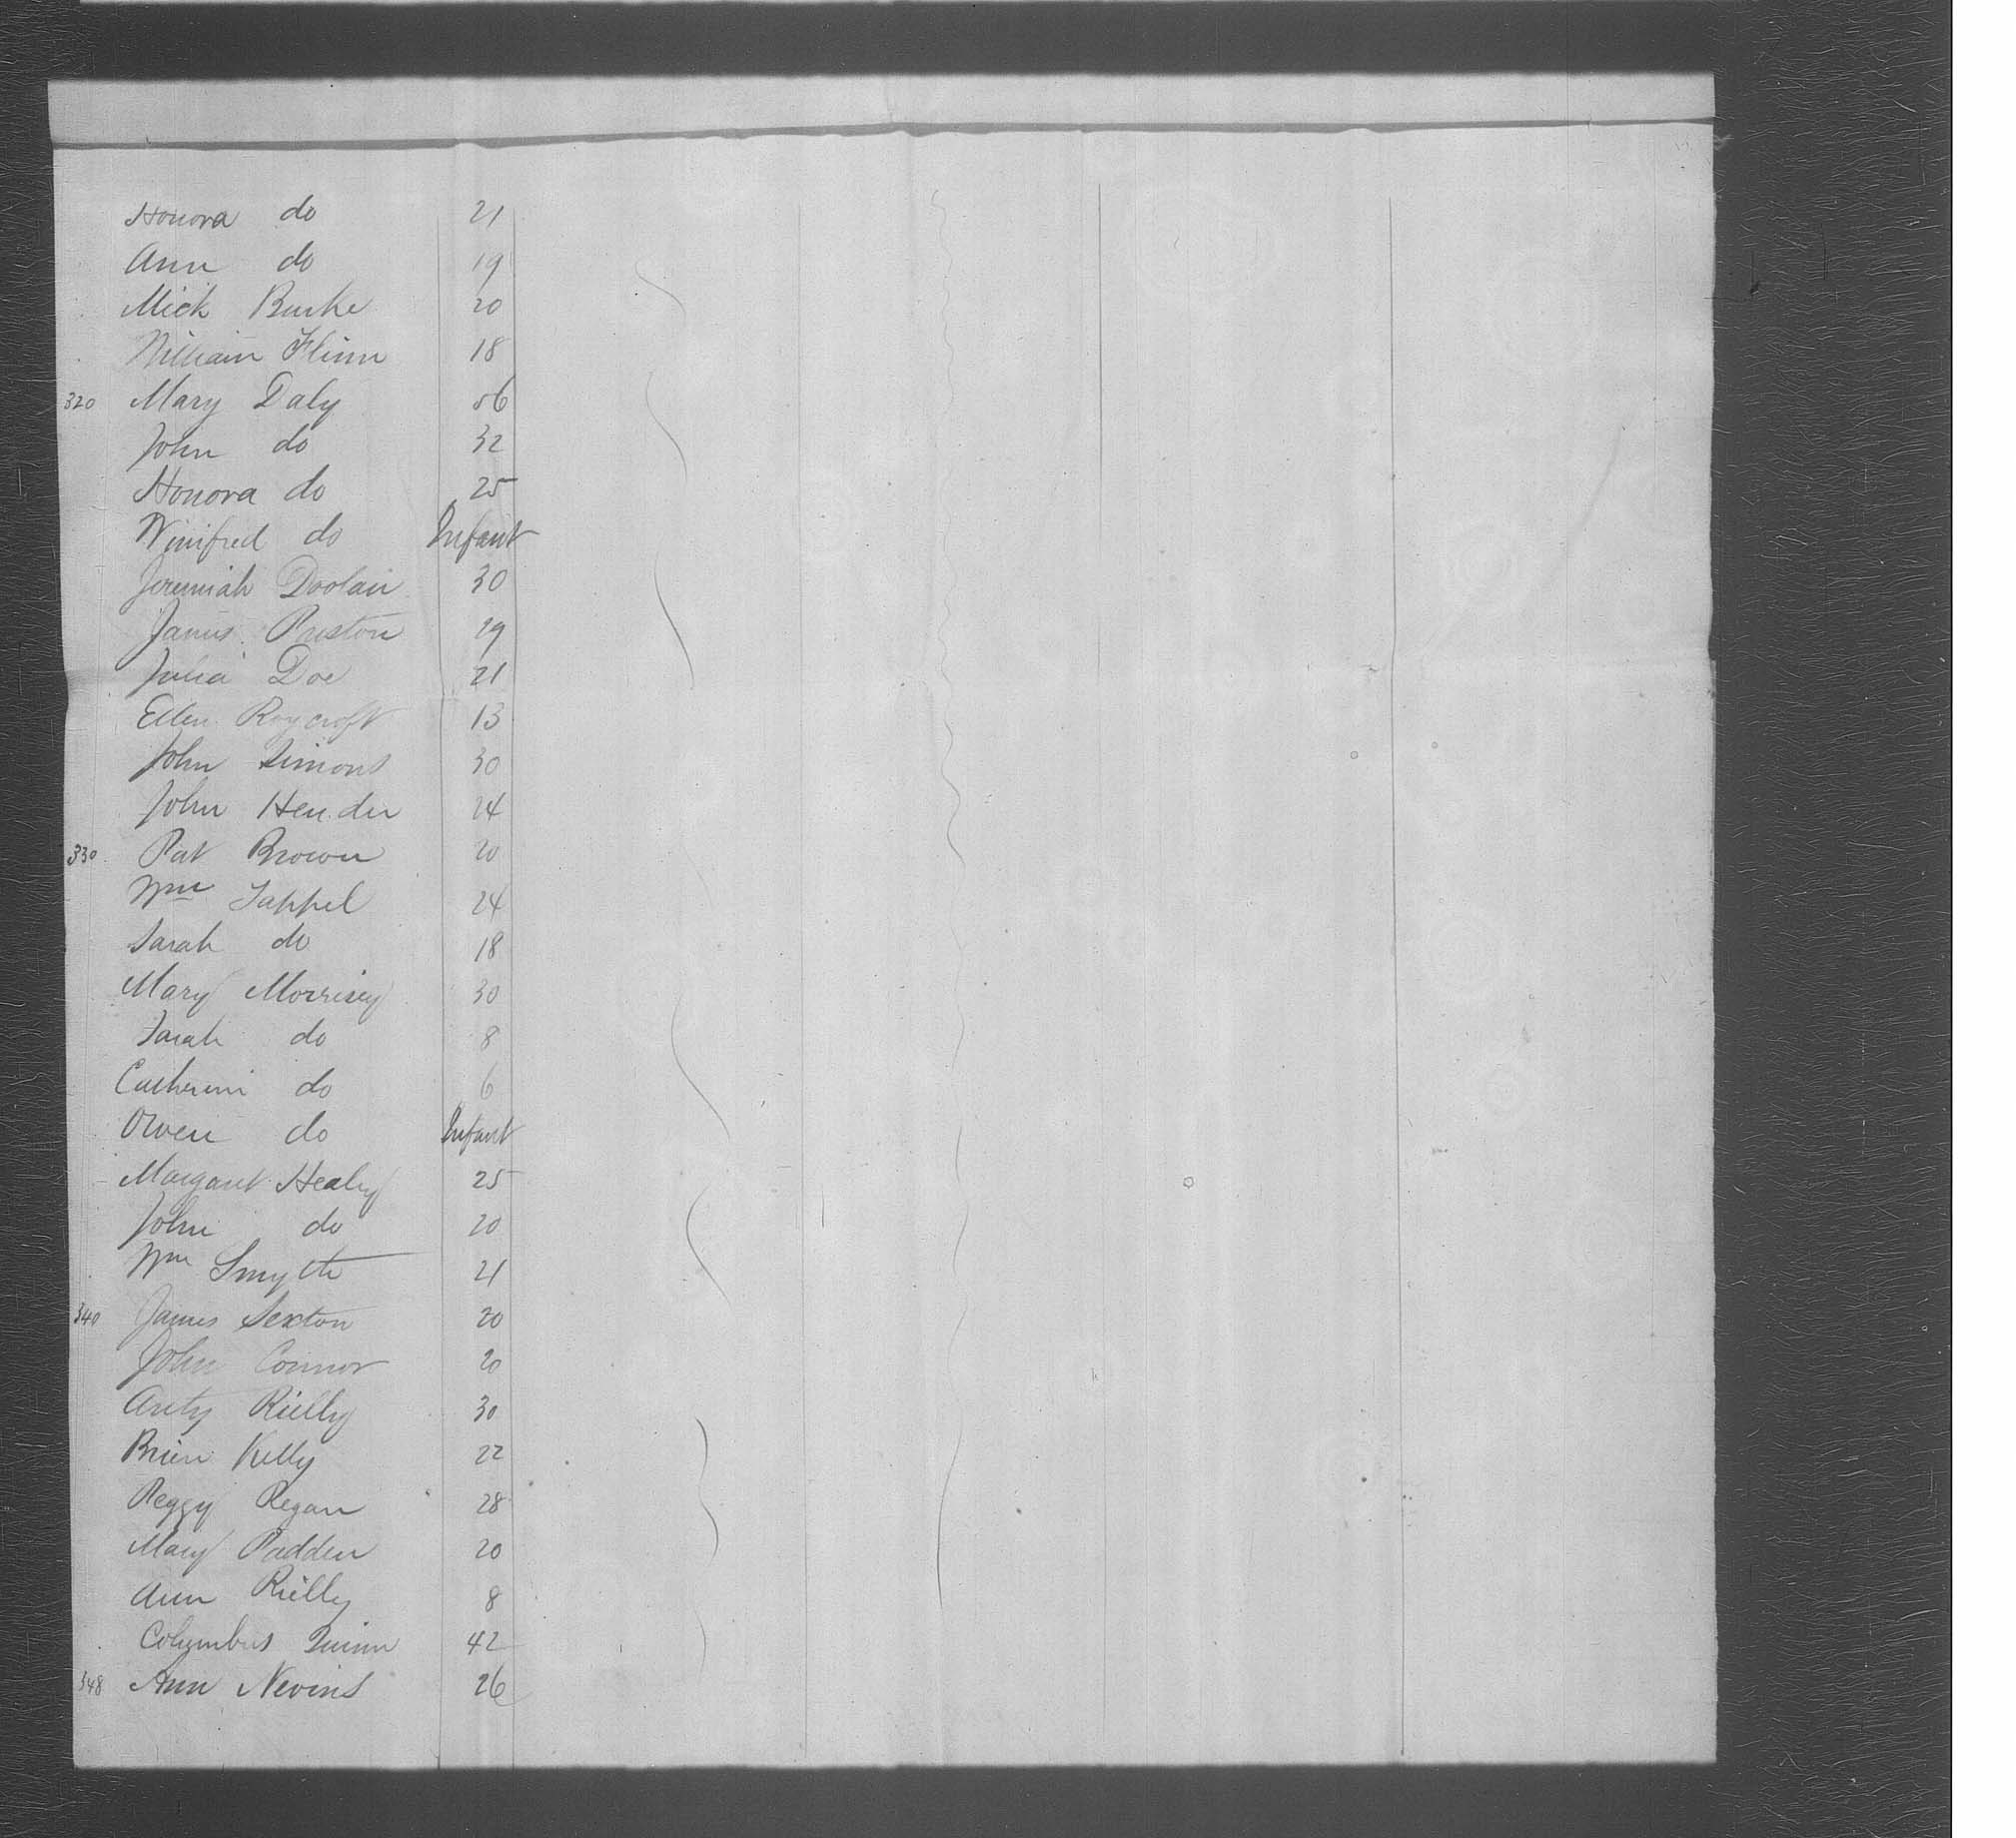 Honora do 21
Ann do 19
Mick Burke 20
William Flinn 18
320 Mary Daly 56
John do 32
Honora do 25
Winifred do Infant
Jeremiah Doolan 30
James Preston 29
Julia Doe 21
Ellen Roycroft 13
John Simons 30
John Hender 24
330 Pat Brown 20
Wm Tappel 24
Sarah do 18
Mary Morrisey 30
Sarah do 8
Catherine do 6
Owen do Infant
Margaret Healey 25
John do 20
Wm Smyth 21
340 James Sexton 20
John Connor 20
Anty Rielly 30
Brien Kelly 22
Peggy Regan 28
Mary Padden 20
Ann Rielly 8
Columbus Quinn 42
348 Ann Nevins 26